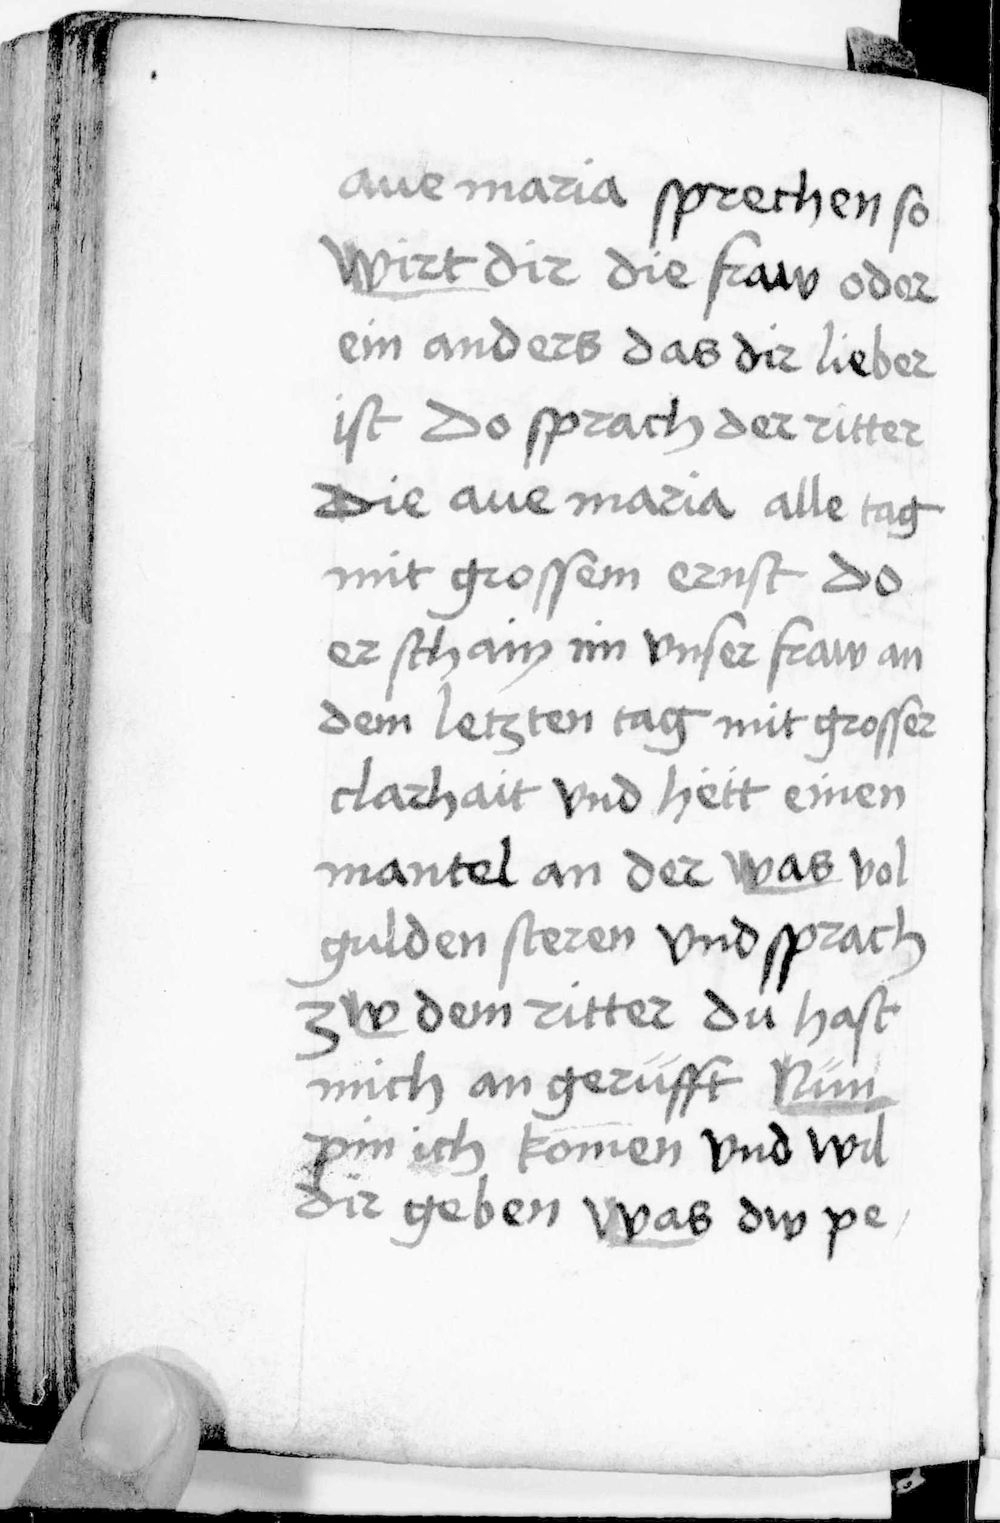 aue maria sprechen so
wirt dir die fraw oder
ein anders das dir lieber
ist Do sprach der ritter
die aue maria alle tag
mit grossem ernst Do
er schain im vnser fraw an
dem letzten tag mit grosser
clarhait vnd hett einen
mantel an der was vol
gulden steren vnd sprach
zw dem ritter du hast
mich an gerüfft Nün
pin ich komen vnd wil
dir geben was dw pe